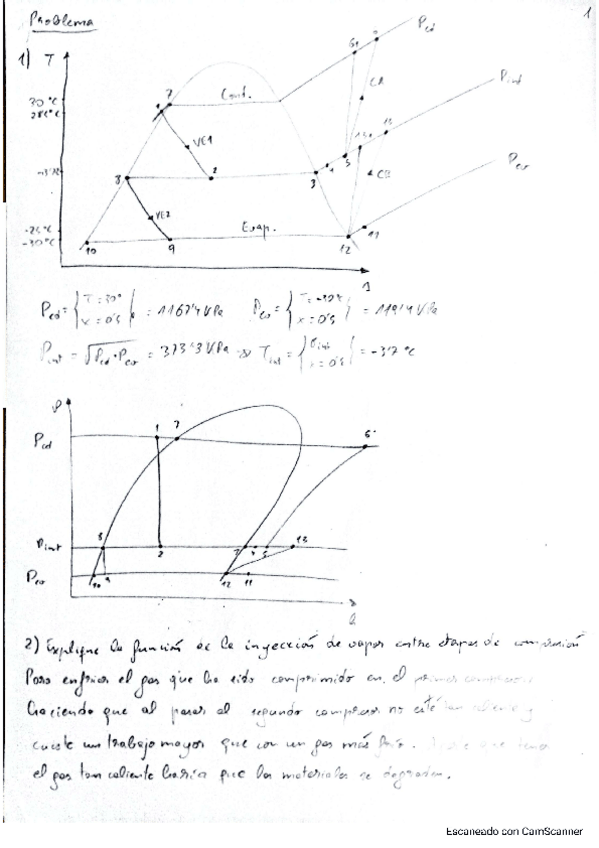 1
Problema
1) T
Pcd
Pint
Pev
30°C
28'5°C
-3'7°C
-26°C
-30°C
Cond.
Evap.
VE1
VE2
CA
CB
7
1
8
2
3
4
5
6
13
9
10
11
12
s
Pcd = { T = 30° x = 0'5 } = 1167'4 kPa Pev = { T = -30°C x = 0'5 } = 119'4 kPa
Pint = √Pcd·Pev = 373'3 kPa Tint = { Pint x = 0'5 } = -3'7 °C
P
Pcd
Pint
Pev
1 7 6
8 2 3 4 5 13
10 9 12 11
2) Explique la función de la inyección de vapor entre etapas de compresión
Para enfriar el gas que ha sido comprimido en el primer compresor
haciendo que al pasar al segundo compresor no esté tan caliente y
cueste un trabajo mayor que con un gas más frío. que tener
el gas tan caliente haría que los materiales se degraden.
Escaneado con CamScanner